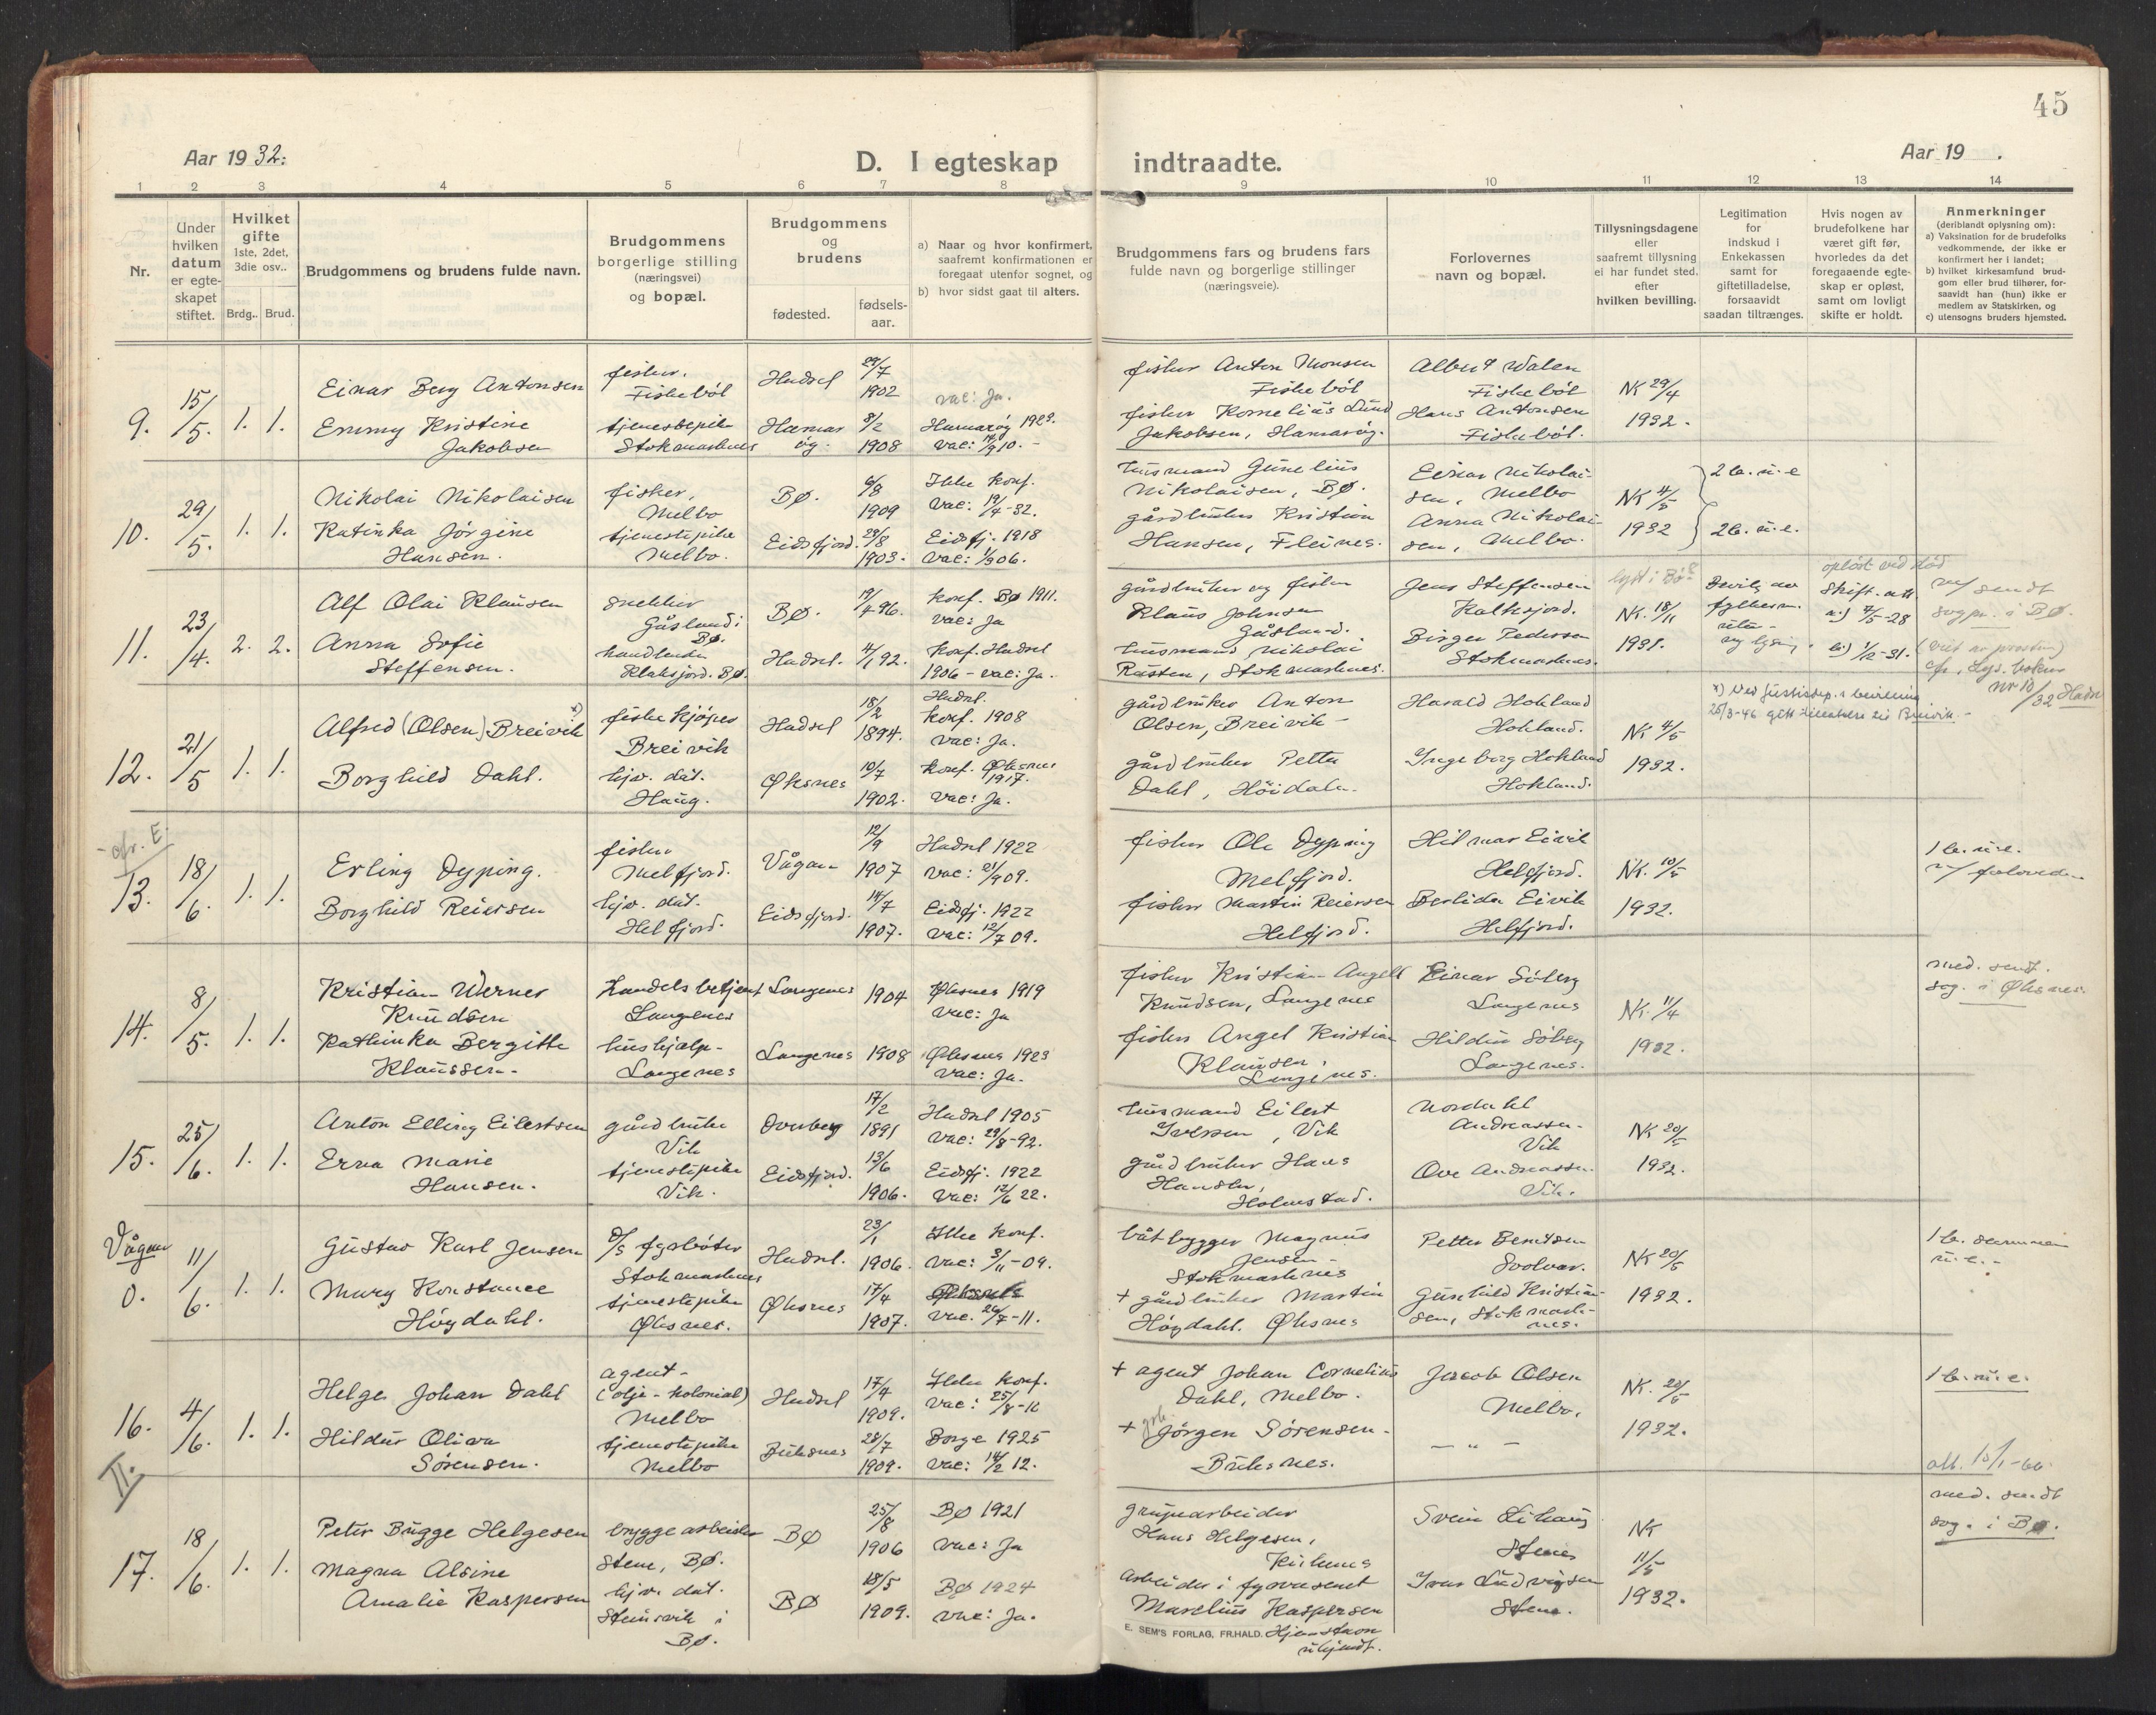 45
Aar 19 32:
D. I egteskap
indtraadte.
Aar 19 .
1 2 3 4 5 6 7 8 9 10 11 12 13 14
Nr.
Under
hvilken
datum
er egte-
skapet
stiftet.
Hvilket
gifte
1ste, 2det,
3die osv..
Brdg.. Brud.
Brudgommens og brudens fulde navn.
Brudgommens
borgerlige stilling
(næringsvei)
og bopæl.
Brudgommens
og
brudens
fødested.
fødsels-
aar.
a) Naar og hvor konfirmert,
saafremt konfirmationen er
foregaat utenfor sognet, og
b) hvor sidst gaat til alters.
Brudgommens fars og brudens fars
fulde navn og borgerlige stillinger
(næringsveie).
Forlovernes
navn og bopæl.
Tillysningsdagene
eller
saafremt tillysning
ei har fundet sted.
efter
hvilken bevilling.
Legitimation
for
indskud i
Enkekassen
samt for
giftetilladelse,
forsaavidt
saadan tiltrænges.
Hvis nogen av
brudefolkene har
været gift før,
hvorledes da det
foregaaende egte-
skap er opløst,
samt om lovligt
skifte er holdt.
Anmerkninger
(deriblandt oplysning om):
a) Vaksination for de brudefolks
vedkommende, der ikke er
konfirmert her i landet;
b) hvilket kirkesamfund brud-
gom eller brud tilhører, for-
saavidt han (hun) ikke er
medlem av Statskirken, og
c) utensogns bruders hjemsted.
9.
15/5.
1. 1.
Einar Berg Antonsen
Emmy Kristine
Jakobsen
fisker.
Fiskebøl
tjenestepike
Stokmarknes
Hadsel
Hamar
øg.
29/7
1902
8/2
1908
vac: Ja.
Hamarøy 1923.
vac: 14/9 10. -
fisker Anton Monsen
Fiskebøl
fisker Kornelius Lund
Jakobsen, Hamarøy.
Albert Walen
Fiskebøl
Hans Antonsen
Fiskebøl.
NK 29/4
1932.
10.
29/5.
1. 1.
Nikolai Nikolaisen
Katinka Jørgine
Hansen.
fisker,
Melbo
tjenestepike
Melbo.
BØ.
Eidsfjord.
6/8
1909
29/8
1903.
Ikke konf.
vac: 19/4-32.
Eidsfj. 1918
vac: 1/9 06.
husmand Gunelius
Nikolaisen, BØ.
gårdbruker Kristian
Hansen, Fleines.
Einar Nikolai-
sen, Melbo
Anna Nikolai-
sen, Melbo.
NK 4/5
1932
2 b. u. e
2 b. u. e.
11.
23/4.
2. 2.
Alf Olai Klausen
Anna Sofie
Steffensen.
snekker
Gåsland i
BØ.
handlende
Klaksjord. BØ.
BØ.
Hadsel.
19/4 96.
4/1 92.
konf. BØ 1911.
vac: Ja
konf. Hadsel
1906 - vac: Ja.
gårdbruker og fisker
Klaus Johnsen
Gåsland.
husmand Nikolai
Rusten, Stokmarknes.
Jens Steffensen
Kalksjord.
Birger Pedersen
Stokmarknes.
lyst i Bø
NK. 18/11
1931.
Bevilg. av
fylkesm.
og lysing.
opløst ved død
Skift. att.
a) 7/5-28
b) 1/2-31.
m/ sendt
sogpr. i BØ.
12.
21/5
1. 1.
Alfred (Olsen) Breivik x)
Borghild Dahl.
fiskekjøper
Breivik
hjv. dat.
Haug.
Hadsel
Øksnes
18/2
1894.
10/7
1902.
Hadsel.
konf. 1908
vac: Ja.
konf. Øksnes
1917.
vac: Ja.
gårdbruker Anton
Olsen, Breivik -
gårdbruker Petter
Dahl, Høidalen.
Harald Hokland
Hokland.
Ingeborg Hokland
Hokland.
NK 4/5
1932.
x) Ved Justisdep.s bevilling
25/3-46 gitt tillatelse til Breivik. -
- cfr. E.
13.
18/6.
1. 1.
Erling Dyping.
Borghild Reiersen
fisker
Melfjord.
hjv. dat.
Helfjord.
Vågan
Eidsfjord.
12/9
1907
14/7
1907.
Hadsel 1922
vac: 21/9 09.
Eidsfj. 1922
vac: 12/7 09.
fisker Ole Dyping
Melfjord.
fisker Martin Reiersen
Helfjord.
Hilmar Eivik
Helfjord.
Berlida Eivik
Helfjord.
NK. 10/5
1932.
1 b. u. e.
14.
8/5.
1. 1.
Kristian Werner
Knudsen
Kathinka Bergitte
Klaussen.
Handelsbetjent
Langenes
hushjelp-
Langenes
Langenes
Langenes
1904
1908
Øksnes 1919
vac: Ja
Øksnes 1923
vac: Ja.
fisker Kristian Angell
Knudsen, Langenes
fisker Angel Kristian
Klausen,
Langenes.
Einar Søberg
Langenes
Hildur Søberg
Langenes.
NK. 11/4
1932.
med. sendt.
sog. i Øksnes.
15.
25/6.
1. 1.
Anton Elling Eilertsen
Erna Marie
Hansen.
gårdbruker
Vik
tjenestepike
Vik.
Dverberg
Eidsfjord.
17/2
1891
13/6
1906.
Hadsel 1905
vac: 29/8-92.
Eidsfj. 1922
vac: 12/6 22.
husmand Eilert
Iversen, Vik
gårdbruker Hans
Hansen,
Holmstad.
Nordahl
Andreassen
Vik
Ove Andreassen
Vik.
NK 20/5
1932.
Vågan
0.
11/6.
1. 1.
Gustav Karl Jensen
Mary Konstance
Høydahl.
D/S fyrbøter
Stokmarknes
tjenestepike
Øksnes.
Hadsel.
Øksnes
23/1
1906.
17/4
1907.
Ikke konf.
vac: 3/11-09.
vac. 26/7-11.
båtbygger Magnus
Jensen
Stokmarknes
+ gårdbruker Martin
Høydahl. Øksnes
Petter Bentsen
Svolvær.
Gunhild Kristian-
sen, Stokmark-
nes.
NK 20/5
1932.
1 b. sammen
u. e. -
16.
4/6.
1. 1.
Helge Johan Dahl
Hildur Oliva
Sørensen.
agent-
(olje-kolonial)
Melbo
tjenestepike
Melbo
Hadsel
Buksnes
17/4
1909.
28/7
1909.
Ikke konf.
vac: 25/8-16
Borge 1925
vac: 14/2 12.
+ agent Johan Cornelius
Dahl, Melbo.
+ Jørgen Sørensen -
Buksnes.
Jacob Olsen
Melbo.
— " —
NK. 20/5
1932.
1 b. u. e.
II.
17.
18/6.
1. 1.
Peter Bugge Helgesen
Magna Alsine
Amalie Kaspersen
bryggearbeider
Stene, BØ.
hjv. dat.
Steinsvik i
BØ.
BØ
BØ
25/8
1906
18/5
1909.
BØ 1921
vac: Ja
BØ 1924
vac: Ja.
grupearbeider
Hans Helgesen,
Kirkenes
arbeider i fyrvesenet
Marelius Kaspersen
Hjemstavn
ukjendt.
Svein Lihaug
Stenes
Ivar Ludvigsen
Stene.
NK
11/5
1932.
att. 15/1-66.
med. sendt
sog. i BØ.
E. SEM'S FORLAG, FR.HALD.